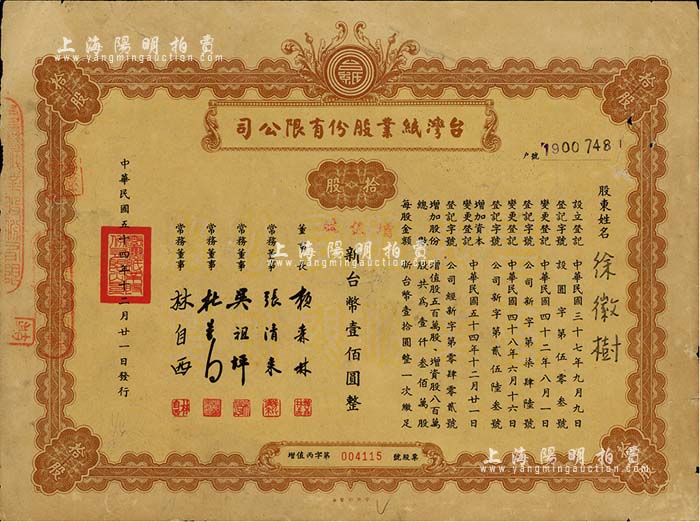 上海陽明拍賣
www.yangmingauction.com
上海陽明拍賣
www.yangmingauction.com
拾股
拾股
台灣紙業股份有限公司
戶號 1900748
拾股
股東姓名 徐徽樹
設立登記 中華民國三十七年九月九日
登記字號 設圓字第伍零叁號
變更登記 中華民國四十二年八月一日
登記字號 公司新字第柒肆陸號
變更登記 中華民國四十八年六月十六日
登記字號 公司新字第貳伍陸叁號
增加資本變更登記 中華民國五十四年十二月廿一日
登記字號 公司經新字第零肆零貳號
增加股份 增值股五百萬股、增資股八百萬
總股共為壹仟叁佰萬股
每股金額 新台幣壹拾圓整一次繳足
新台幣壹佰圓整
董事長
常務董事 張清來
常務董事 吳祖坪
常務董事
常務董事 林自西
中華民國五十四年十二月廿一日發行
上海陽明拍賣
www.yangmingauction.com
拾股
增值丙字第 004115 號股票
上海陽明拍賣
www.yangmingauction.com